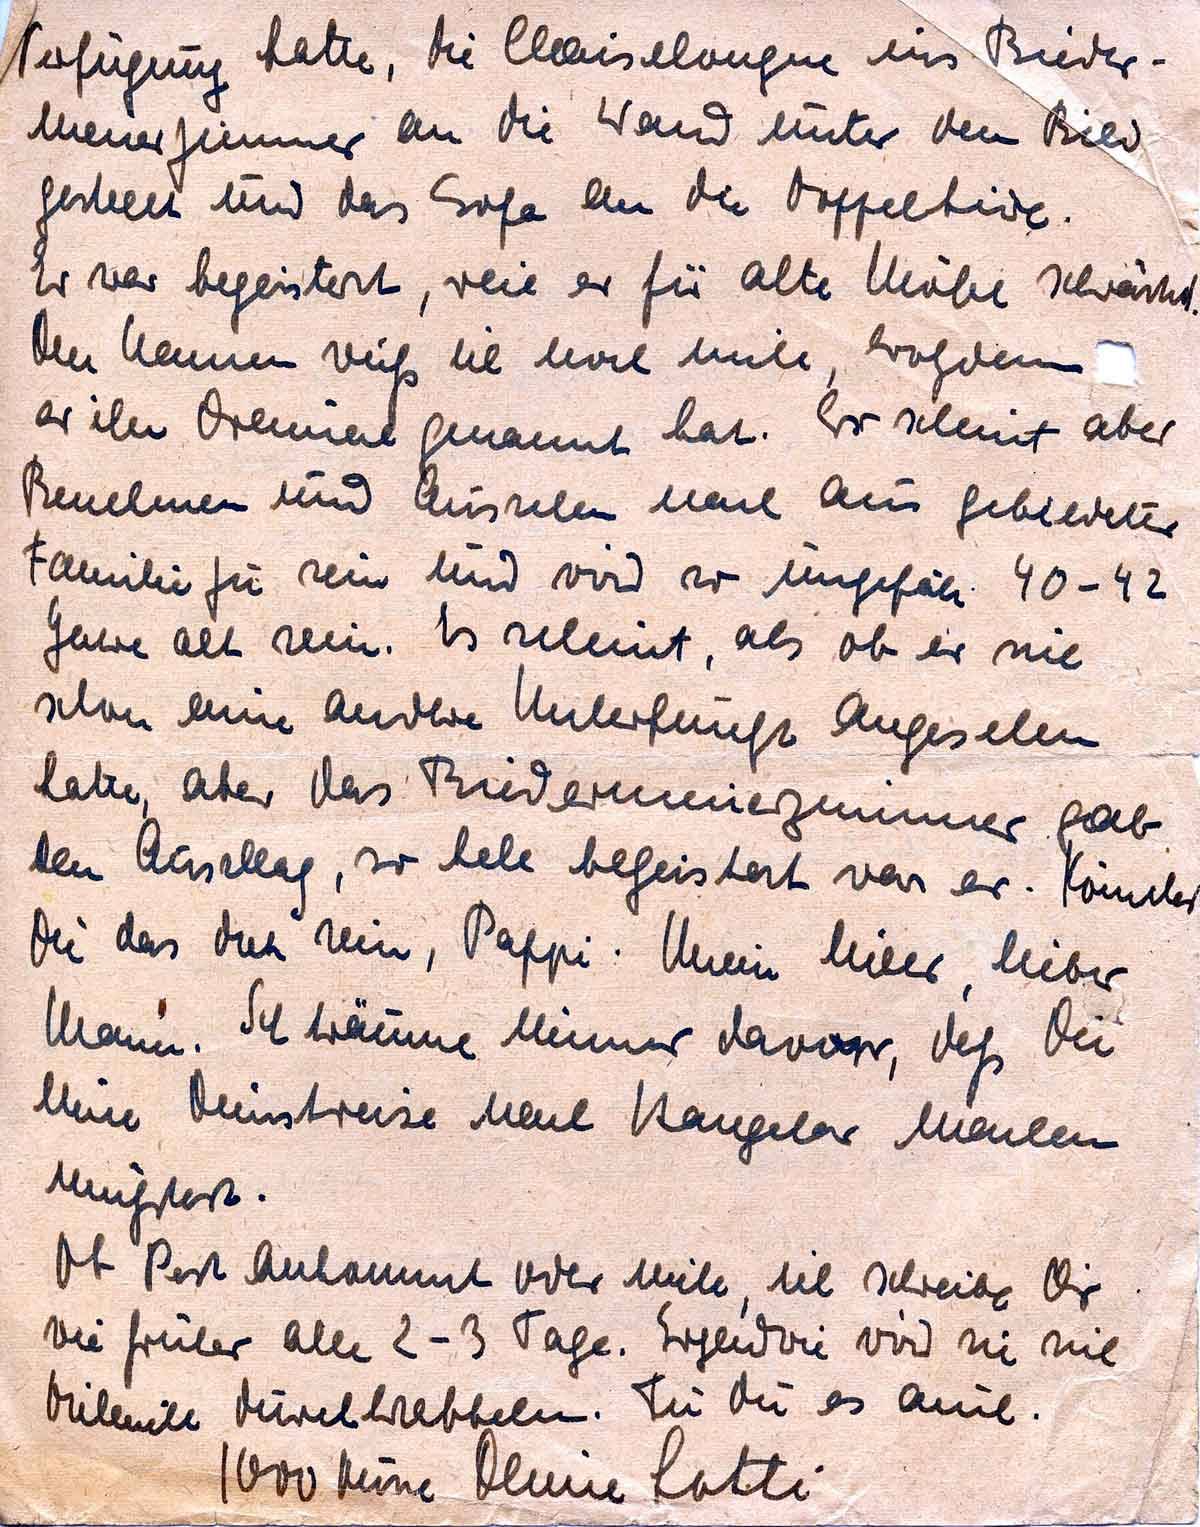 Verfügung hatte, die Chaiselongue ins Bieder-
meierzimmer an die Wand unter dem Bild
gestellt und das Sofa an die Doppeltüre.
Er war begeistert, weil er für alte Möbel schwärmt.
Den Namen weiß ich noch nicht, trotzdem
er ihn dreimal genannt hat. Er scheint aber
Benehmen und Aussehen nach aus gebildeter
Familie zu sein und wird so ungefähr 40-42
Jahre alt sein. Es scheint, als ob er sich
schon eine andere Unterkunft angesehen
hatte, aber das Biedermeierzimmer gab
den Ausschlag, so hell begeistert war er. Könntest
Du das doch sein, Pappi. Mein lieber, lieber
Mann. Ich träume immer davon, daß Du
eine Dienstreise nach Hangelar machen
müßtest.
Ob Post ankommt oder nicht, ich schreibe Dir
wie früher alle 2-3 Tage. Irgendwie wird sie sich
vielleicht durchkrabbeln. Tu Du es auch.
1000 Deine Lotti